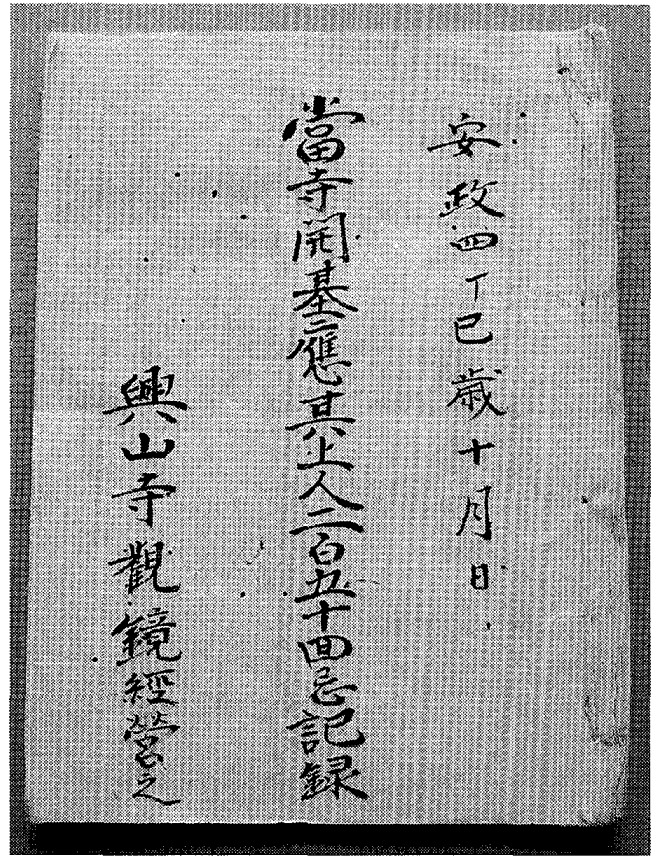 安政四丁巳歳十月日
當寺開基應其上人二百五十回忌記録
興山寺觀鏡經營之